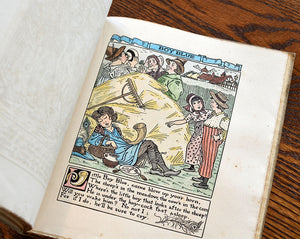 BOY BLUE
Little Boy Blue, come blow up your horn,
The sheep's in the meadow, the cow's in the corn.
Where's the little boy that looks after the sheep?
He's under the haycock fast asleep.
Will you wake him? No, not I;
For if I do, he'll be sure to cry.